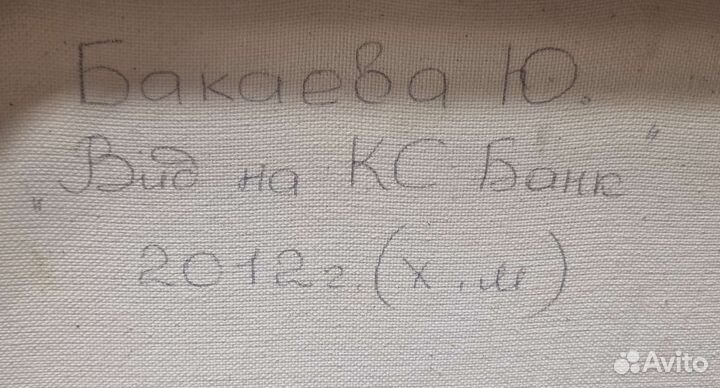 Бакаева Ю.
„Вид на КС Банк"
2012 г. (х.м)
Avito